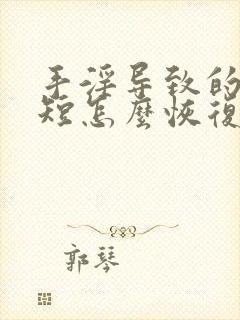 手淫导致的
短怎麼恢復
郭琴